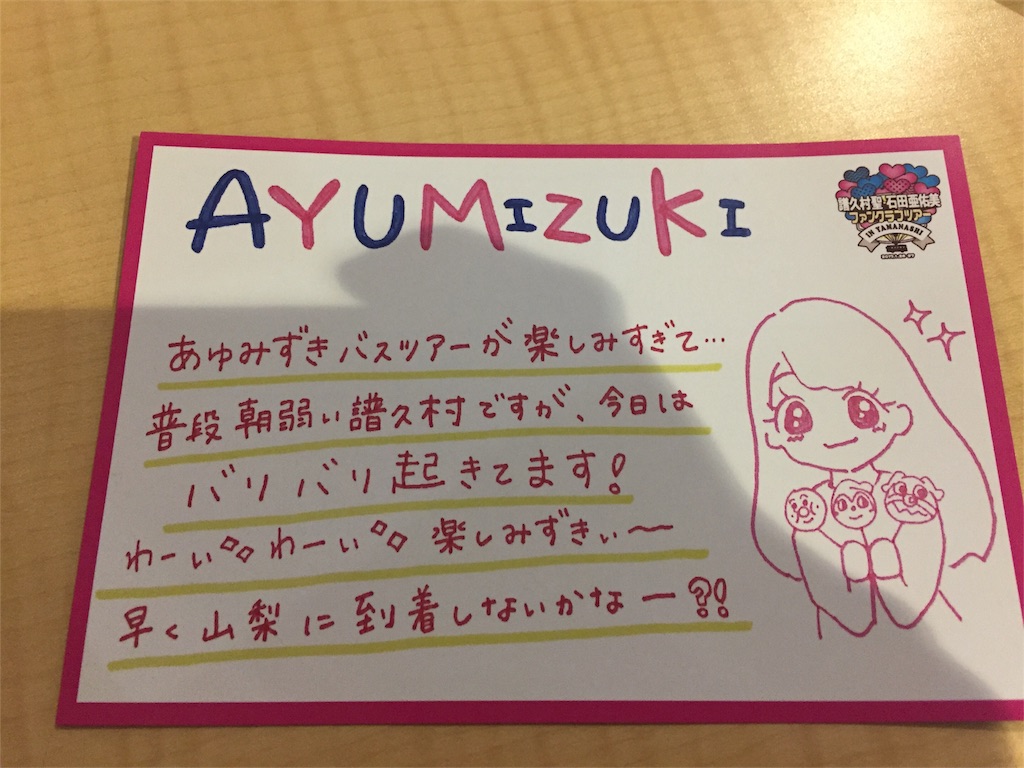 AYUMIZUKI
譜久村聖・石田亜佑美
ファンクラブツアー
IN YAMANASHI
あゆみずきバスツアーが楽しみすぎて…
普段朝弱い譜久村ですが、今日は
バリバリ起きてます!
わーい わーい 楽しみずきぃ〜
早く山梨に到着しないかなー?!